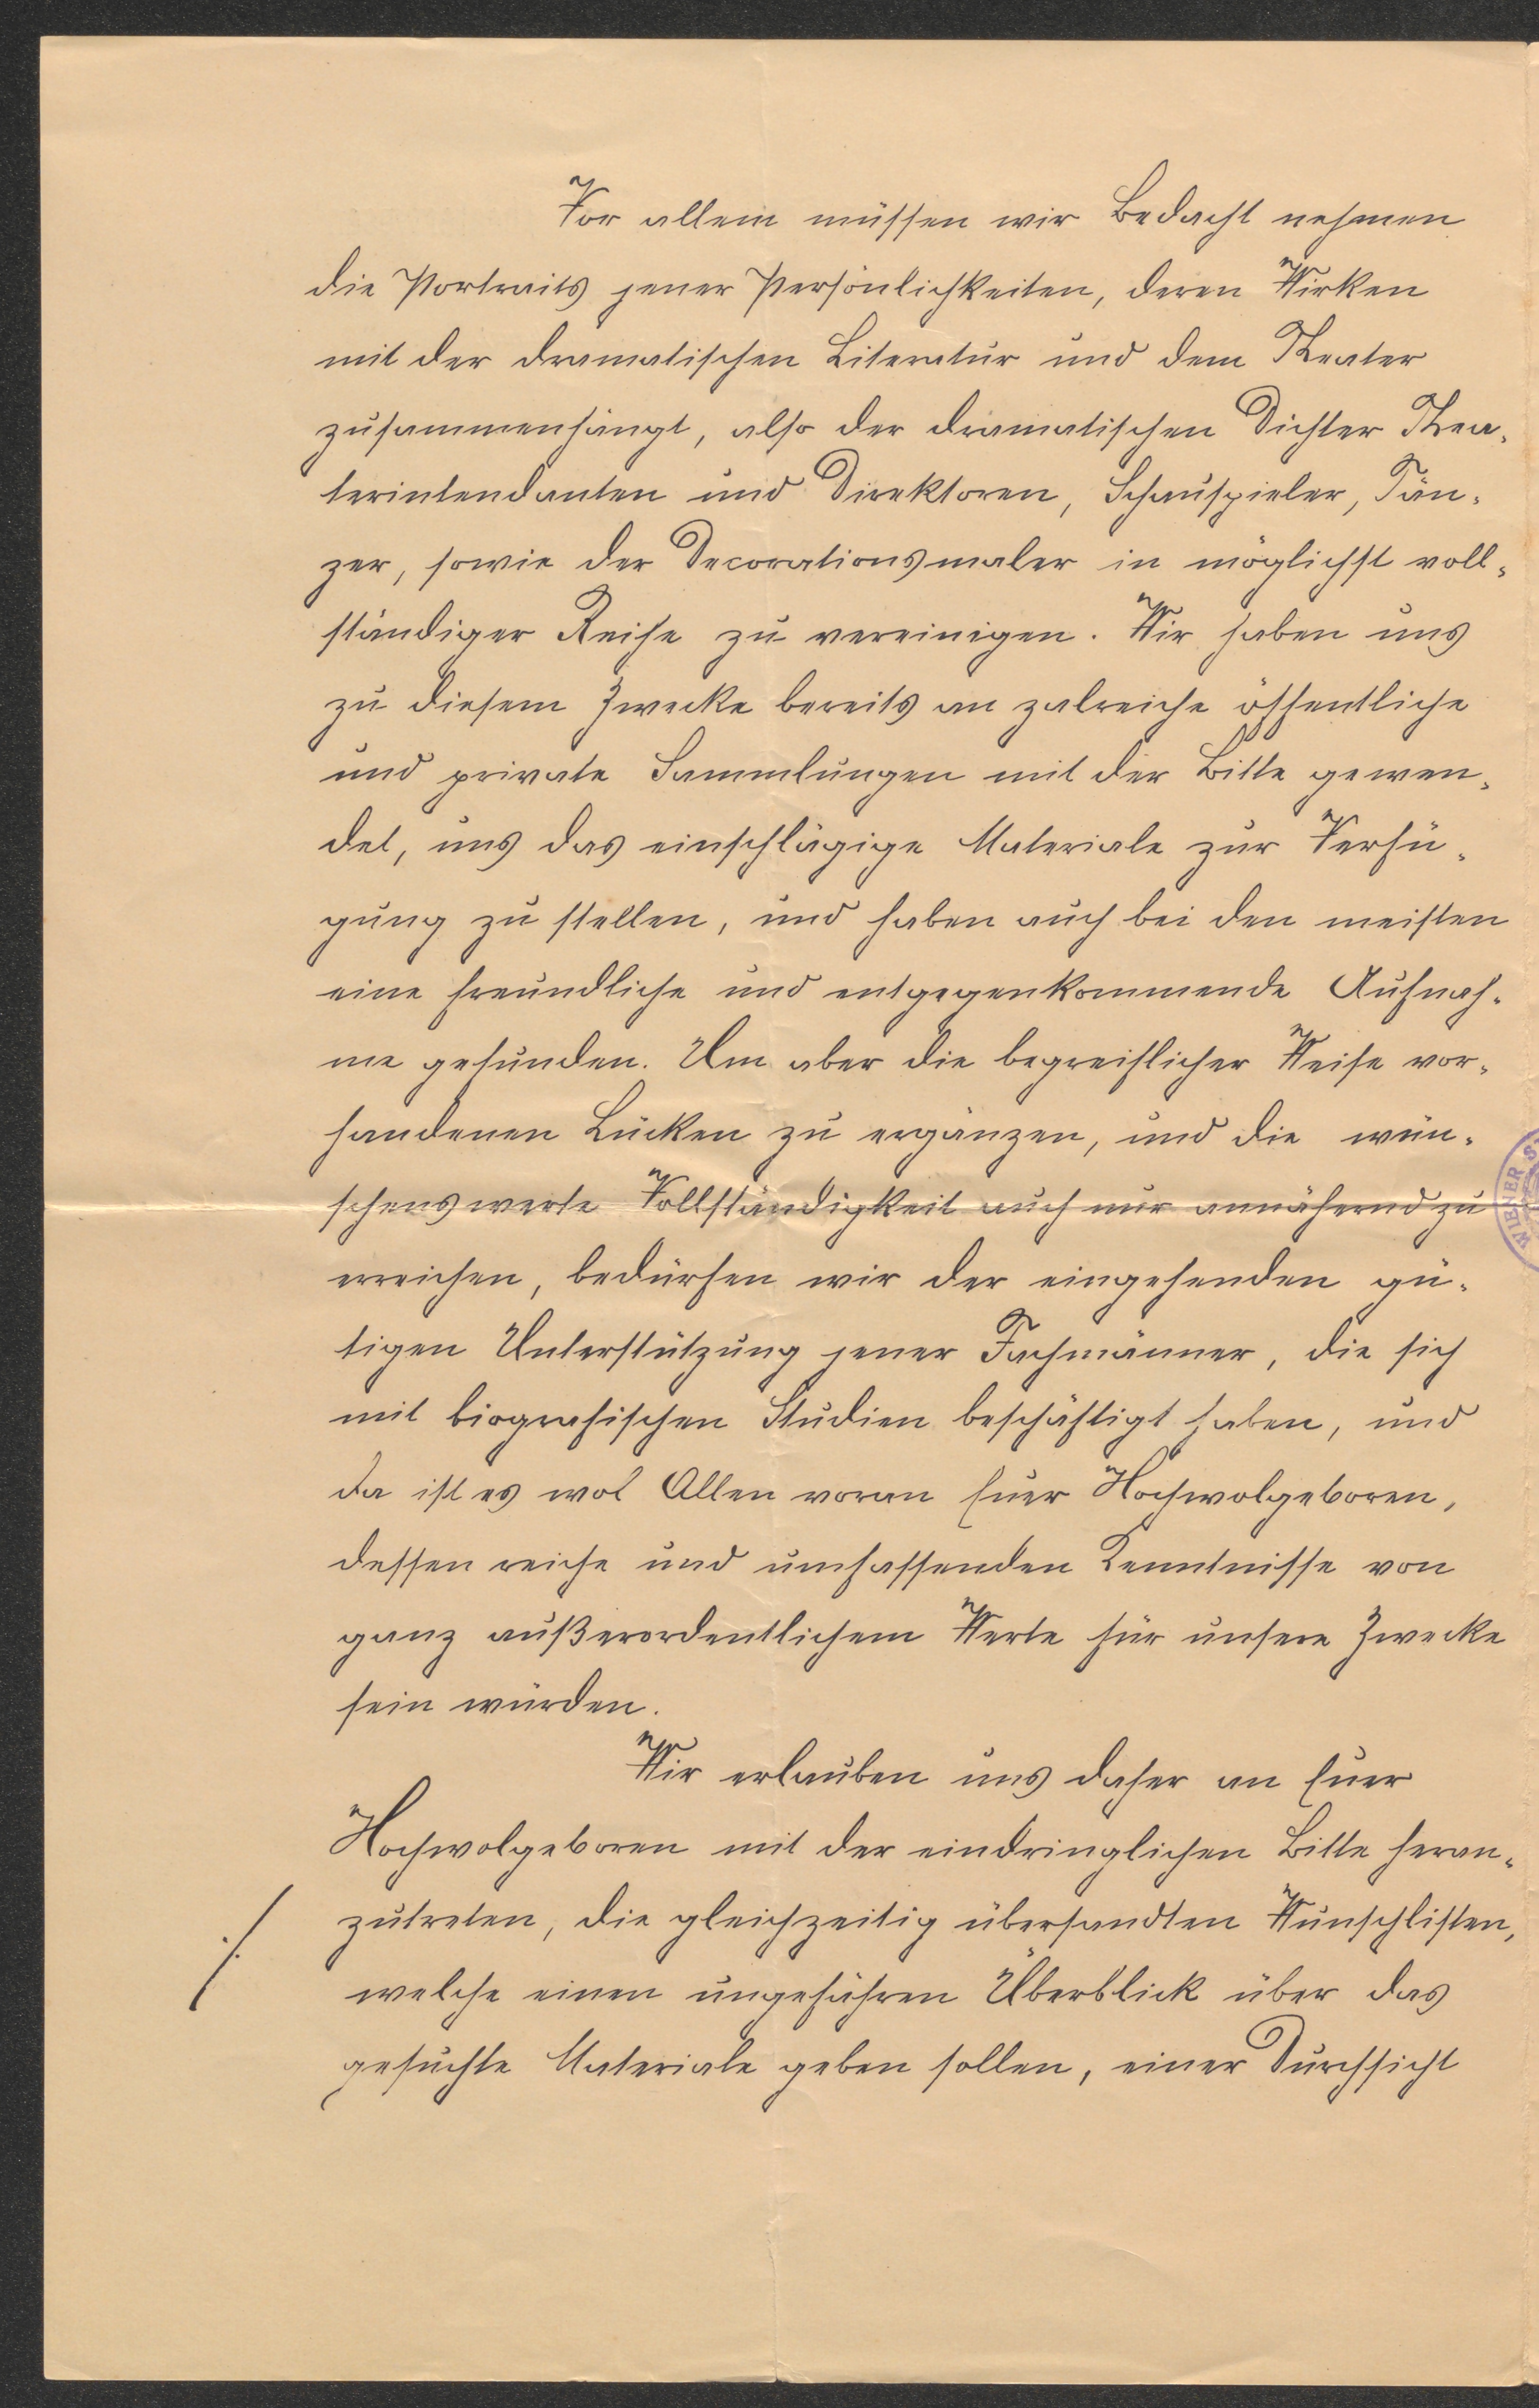 Vor allem müssen wir Bedacht nehmen
die Portraits jener Persönlichkeiten, deren Wirken
mit der dramatischen Literatur und dem Theater
zusammenhängt, also der dramatischen Dichter Thea-
terintendanten und Direktoren, Schauspieler, Tän-
zer, sowie der Decorationsmaler in möglichst voll-
ständiger Reihe zu vereinigen. Wir haben uns
zu diesem Zwecke bereits an zalreiche öffentliche
und private Sammlungen mit der Bitte gewen-
det, uns das einschlägige Materiale zur Verfü-
gung zu stellen, und haben auch bei den meisten
eine freundliche und entgegenkommende Aufnah-
me gefunden. Um aber die begreiflicher Weise vor-
handenen Lücken zu ergänzen, und die wün-
schenswerte Vollständigkeit auch nur annähernd zu
erreichen, bedürfen wir der eingehenden gü-
tigen Unterstützung jener Fachmänner, die sich
mit biografischen Studien beschäftigt haben, und
da ist es wol Allen voran Euer Hochwolgeboren,
dessen reiche und umfassenden Kenntnisse von
ganz außerordentlichem Werte für unsere Zwecke
sein würden.
Wir erlauben uns daher an Euer
Hochwolgeboren mit der eindringlichen Bitte heran-
./. zutreten, die gleichzeitig übersandten Wunschlisten,
welche einen ungefähren Überblick über das
gesuchte Materiale geben sollen, einer Durchsicht
WIENER S